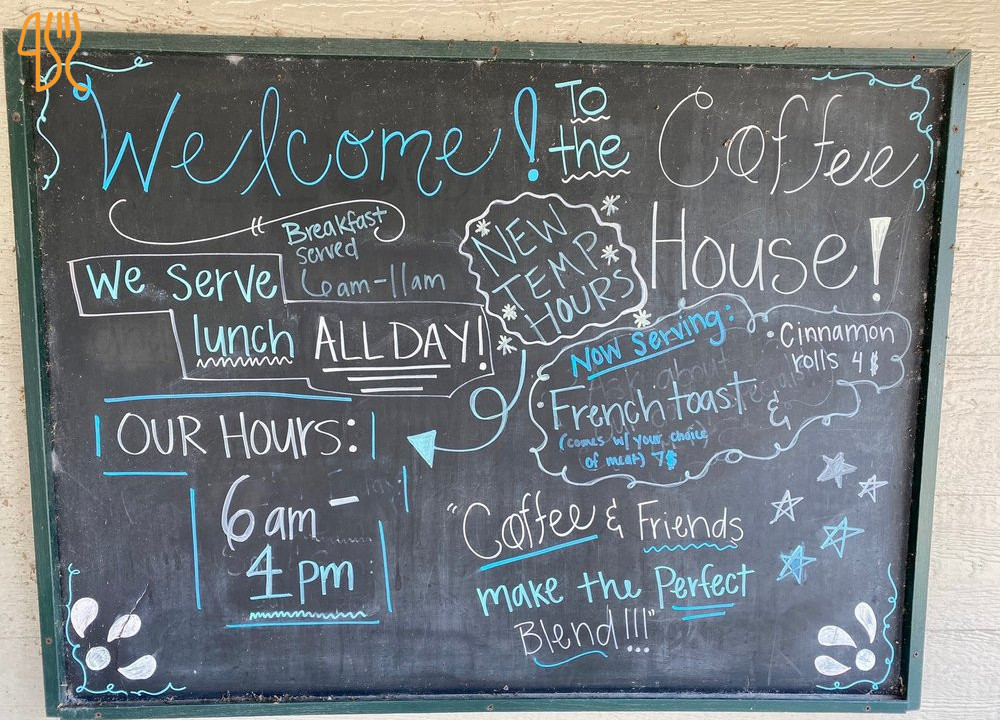 Welcome! To the Coffee House!
Breakfast
served
6am-11am
We serve
lunch ALL DAY!
NEW
TEMP
HOURS
Now Serving:
French toast &
(comes w/ your choice
of meat) 7$
Cinnamon
rolls 4$
OUR HOURS:
6am -
4pm
"Coffee & Friends
make the Perfect
Blend!!!"